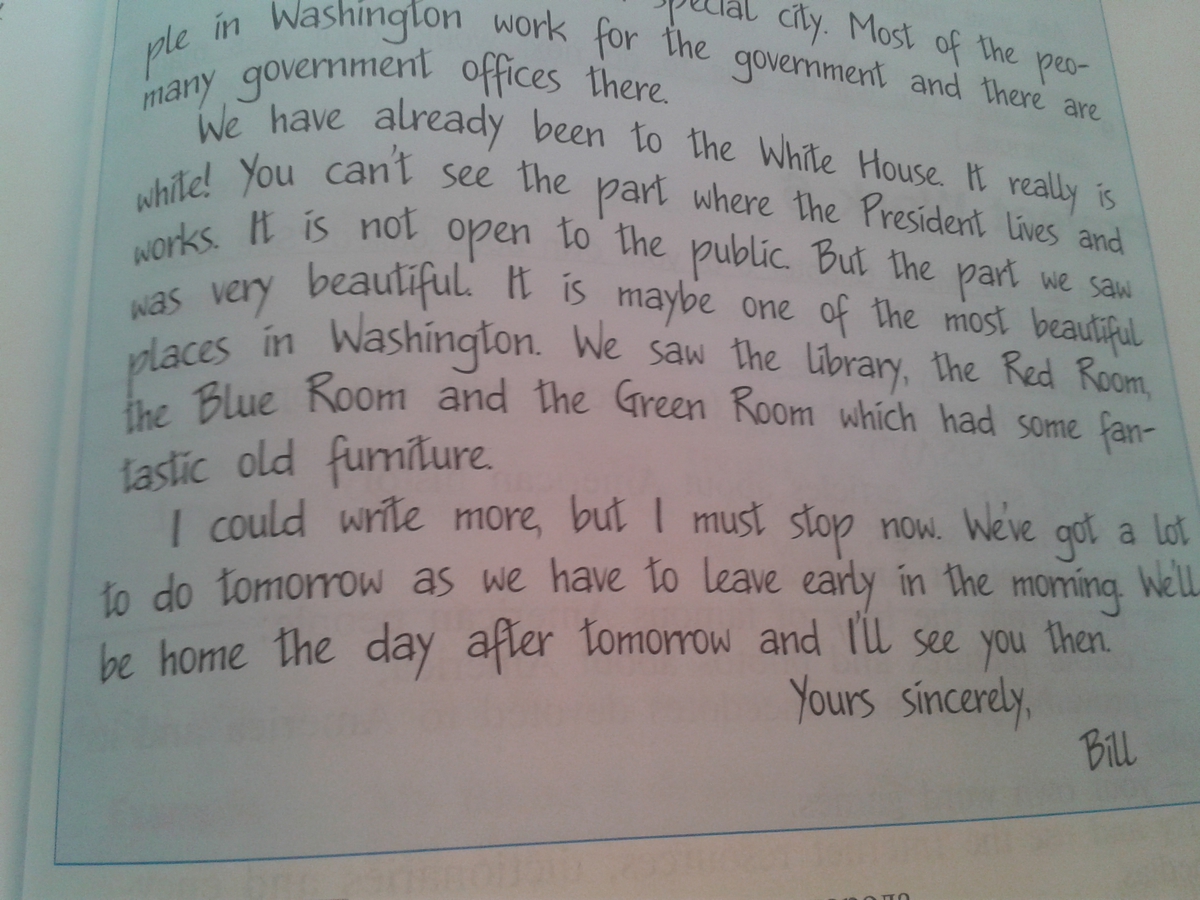 special city. Most of the peo-
ple in Washington work for the government and there are
many government offices there.
We have already been to the White House. It really is
white! You can't see the part where the President lives and
works. It is not open to the public. But the part we saw
was very beautiful. It is maybe one of the most beautiful
places in Washington. We saw the library, the Red Room,
the Blue Room and the Green Room which had some fan-
tastic old furniture.
I could write more, but I must stop now. We've got a lot
to do tomorrow as we have to leave early in the morning. We'll
be home the day after tomorrow and I'll see you then.
Yours sincerely,
Bill